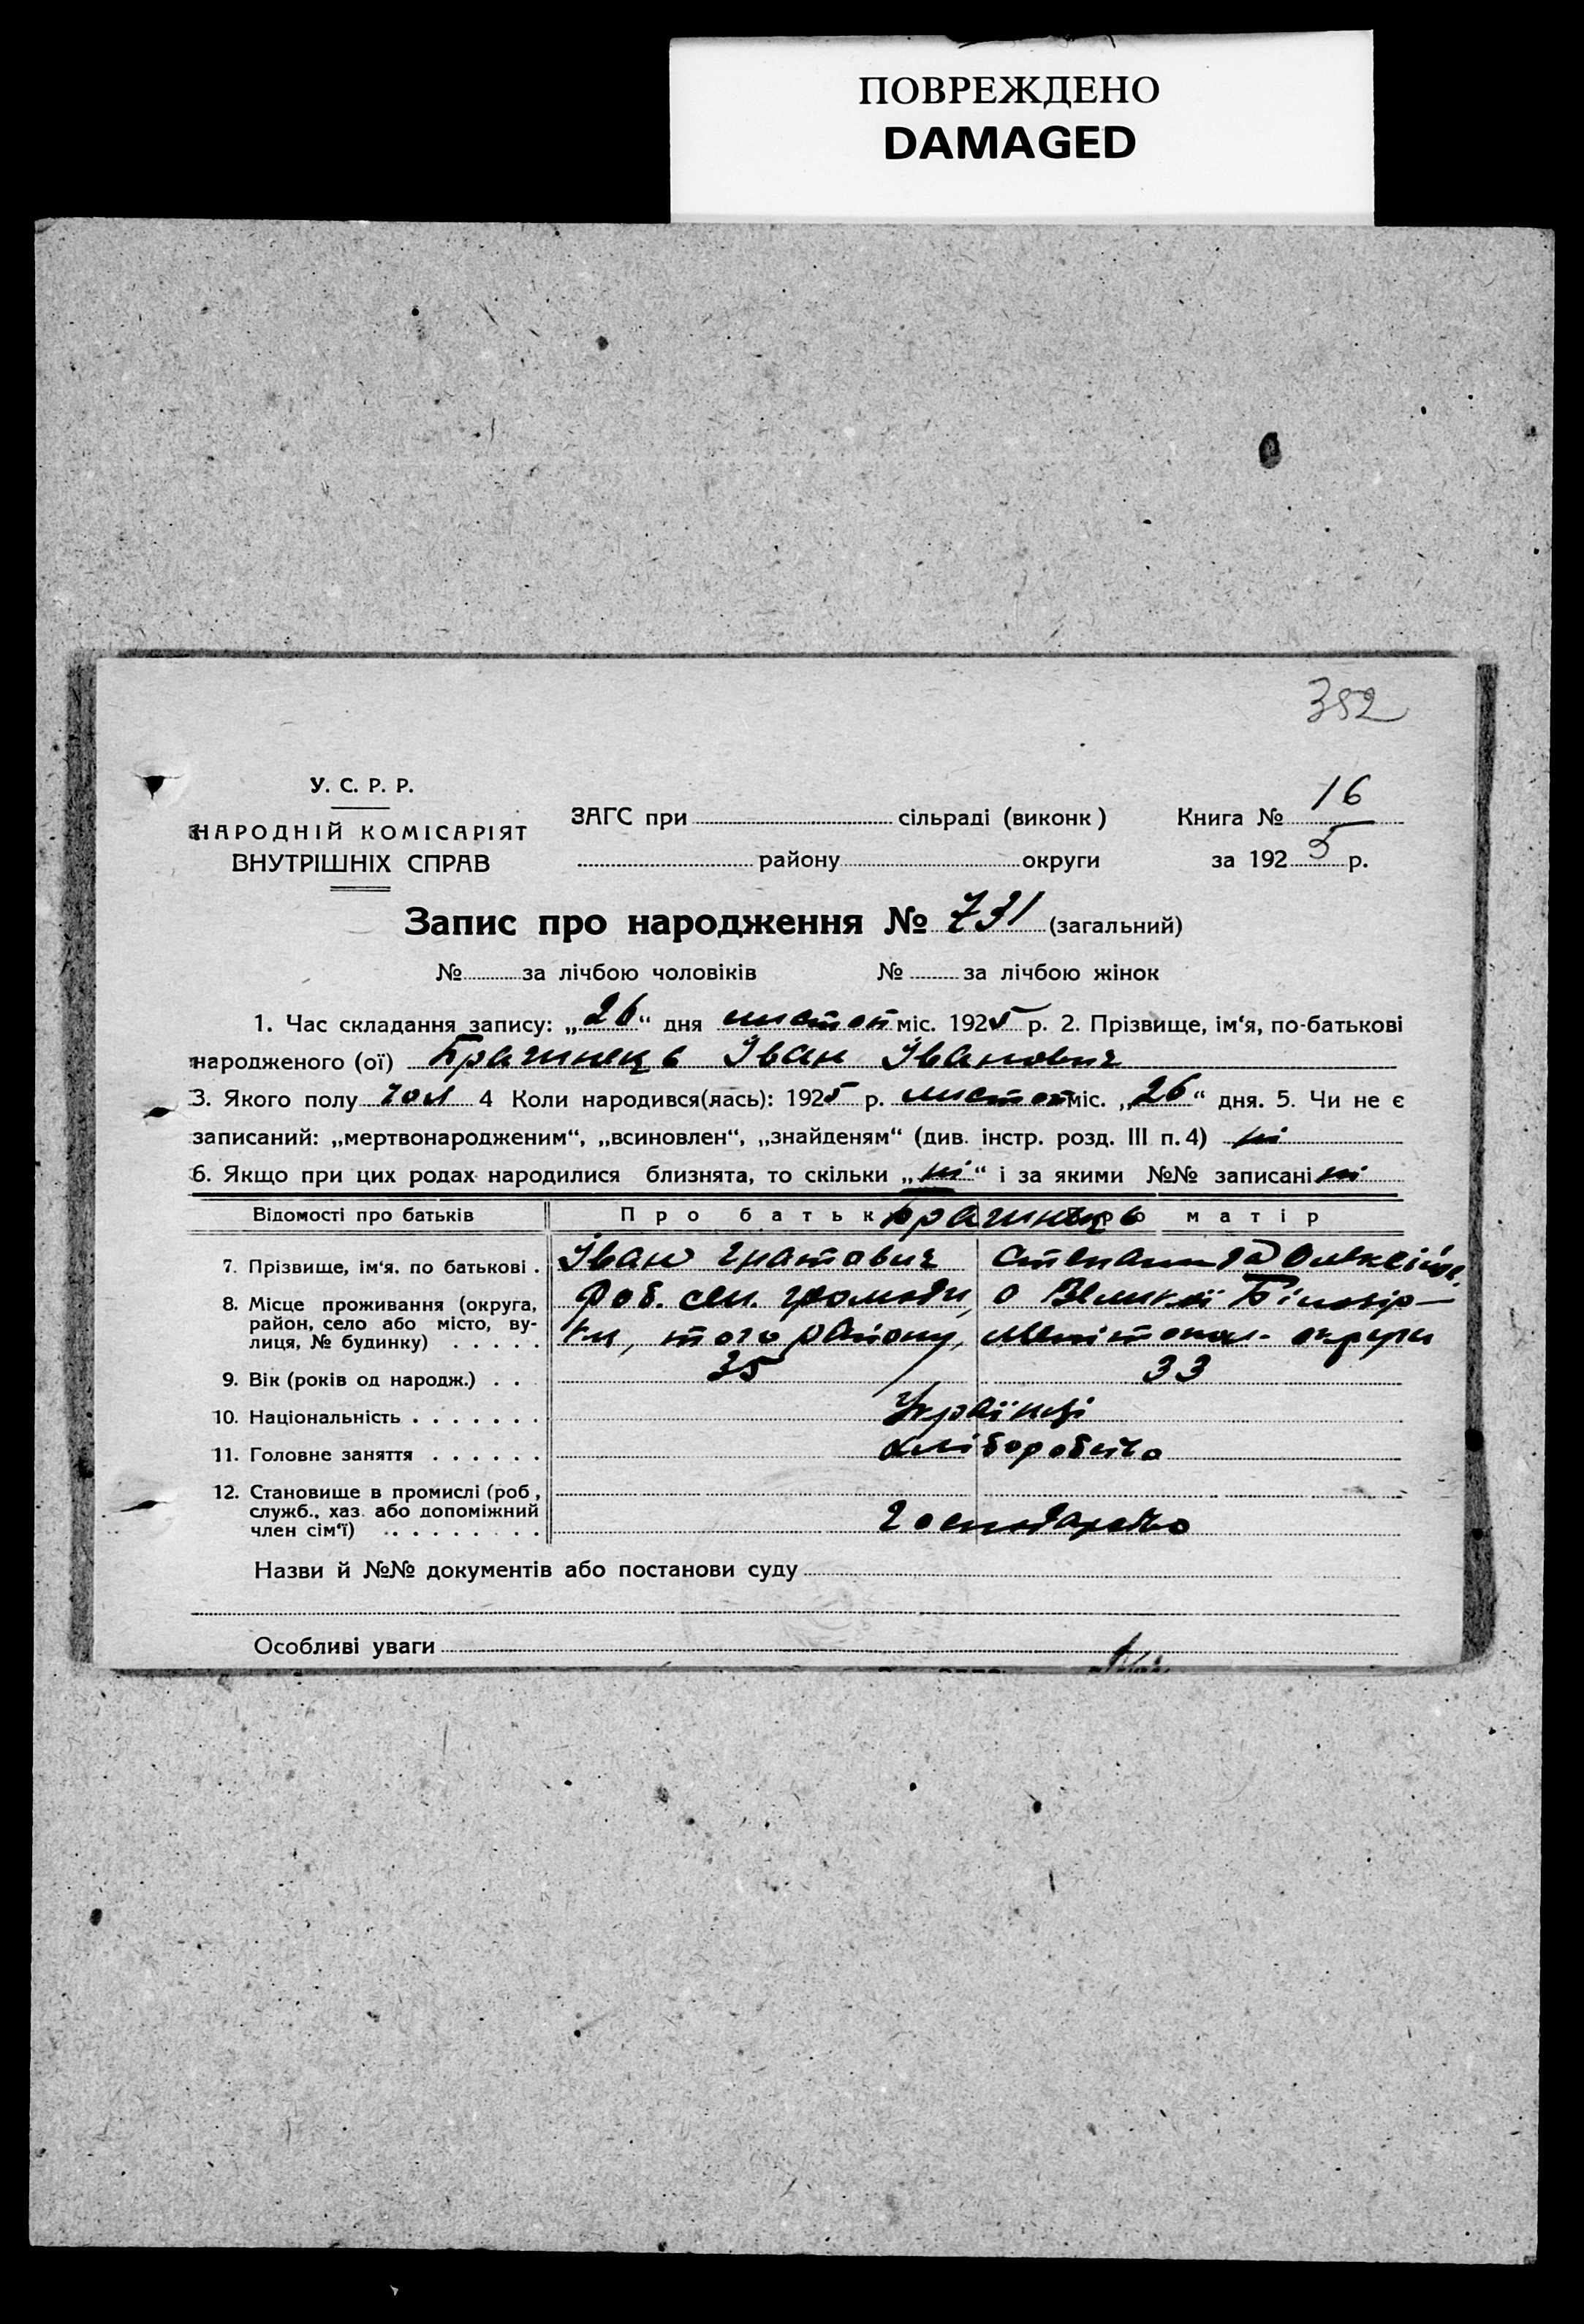 ПОВРЕЖДЕНО
DAMAGED
352
У. С. Р. Р.
НАРОДНІЙ КОМІСАРІЯТ
ВНУТРІШНІХ СПРАВ
ЗАГС при сільраді (виконк) Книга № 16
району округи за 1925 р.
Запис про народження № 731 (загальний)
№ за лічбою чоловіків № за лічбою жінок
1. Час складання запису: „26“ дня листоп міс. 1925 р. 2. Прізвище, ім'я, по-батькові
народженого (ої) Іван Іванович
3. Якого полу чол 4 Коли народився(лась): 1925 р. листоп міс. „26“ дня. 5. Чи не є
записаний: „мертвонародженим“, „всиновлен“, „знайденям“ (див. інстр. розд. III п. 4) ні
6. Якщо при цих родах народилися близнята, то скільки „ні“ і за якими №№ записані ні
Відомості про батьків Про батьк матір
7. Прізвище, ім'я, по батькові . Іван Гнатович
8. Місце проживання (округа, район, село або місто, вулиця, № будинку) . . . . . Роб. сел. громади, Великої Білозір-
ки, того району, округи
9. Вік (років од народж.) . . 35 33
10. Національність . . . . . . . Українці
11. Головне заняття . . . . . . хліборобство
12. Становище в промислі (роб,
служб., хаз. або допоміжний
член сім'ї) . . . . . . . . господарство
Назви й №№ документів або постанови суду
Особливі уваги